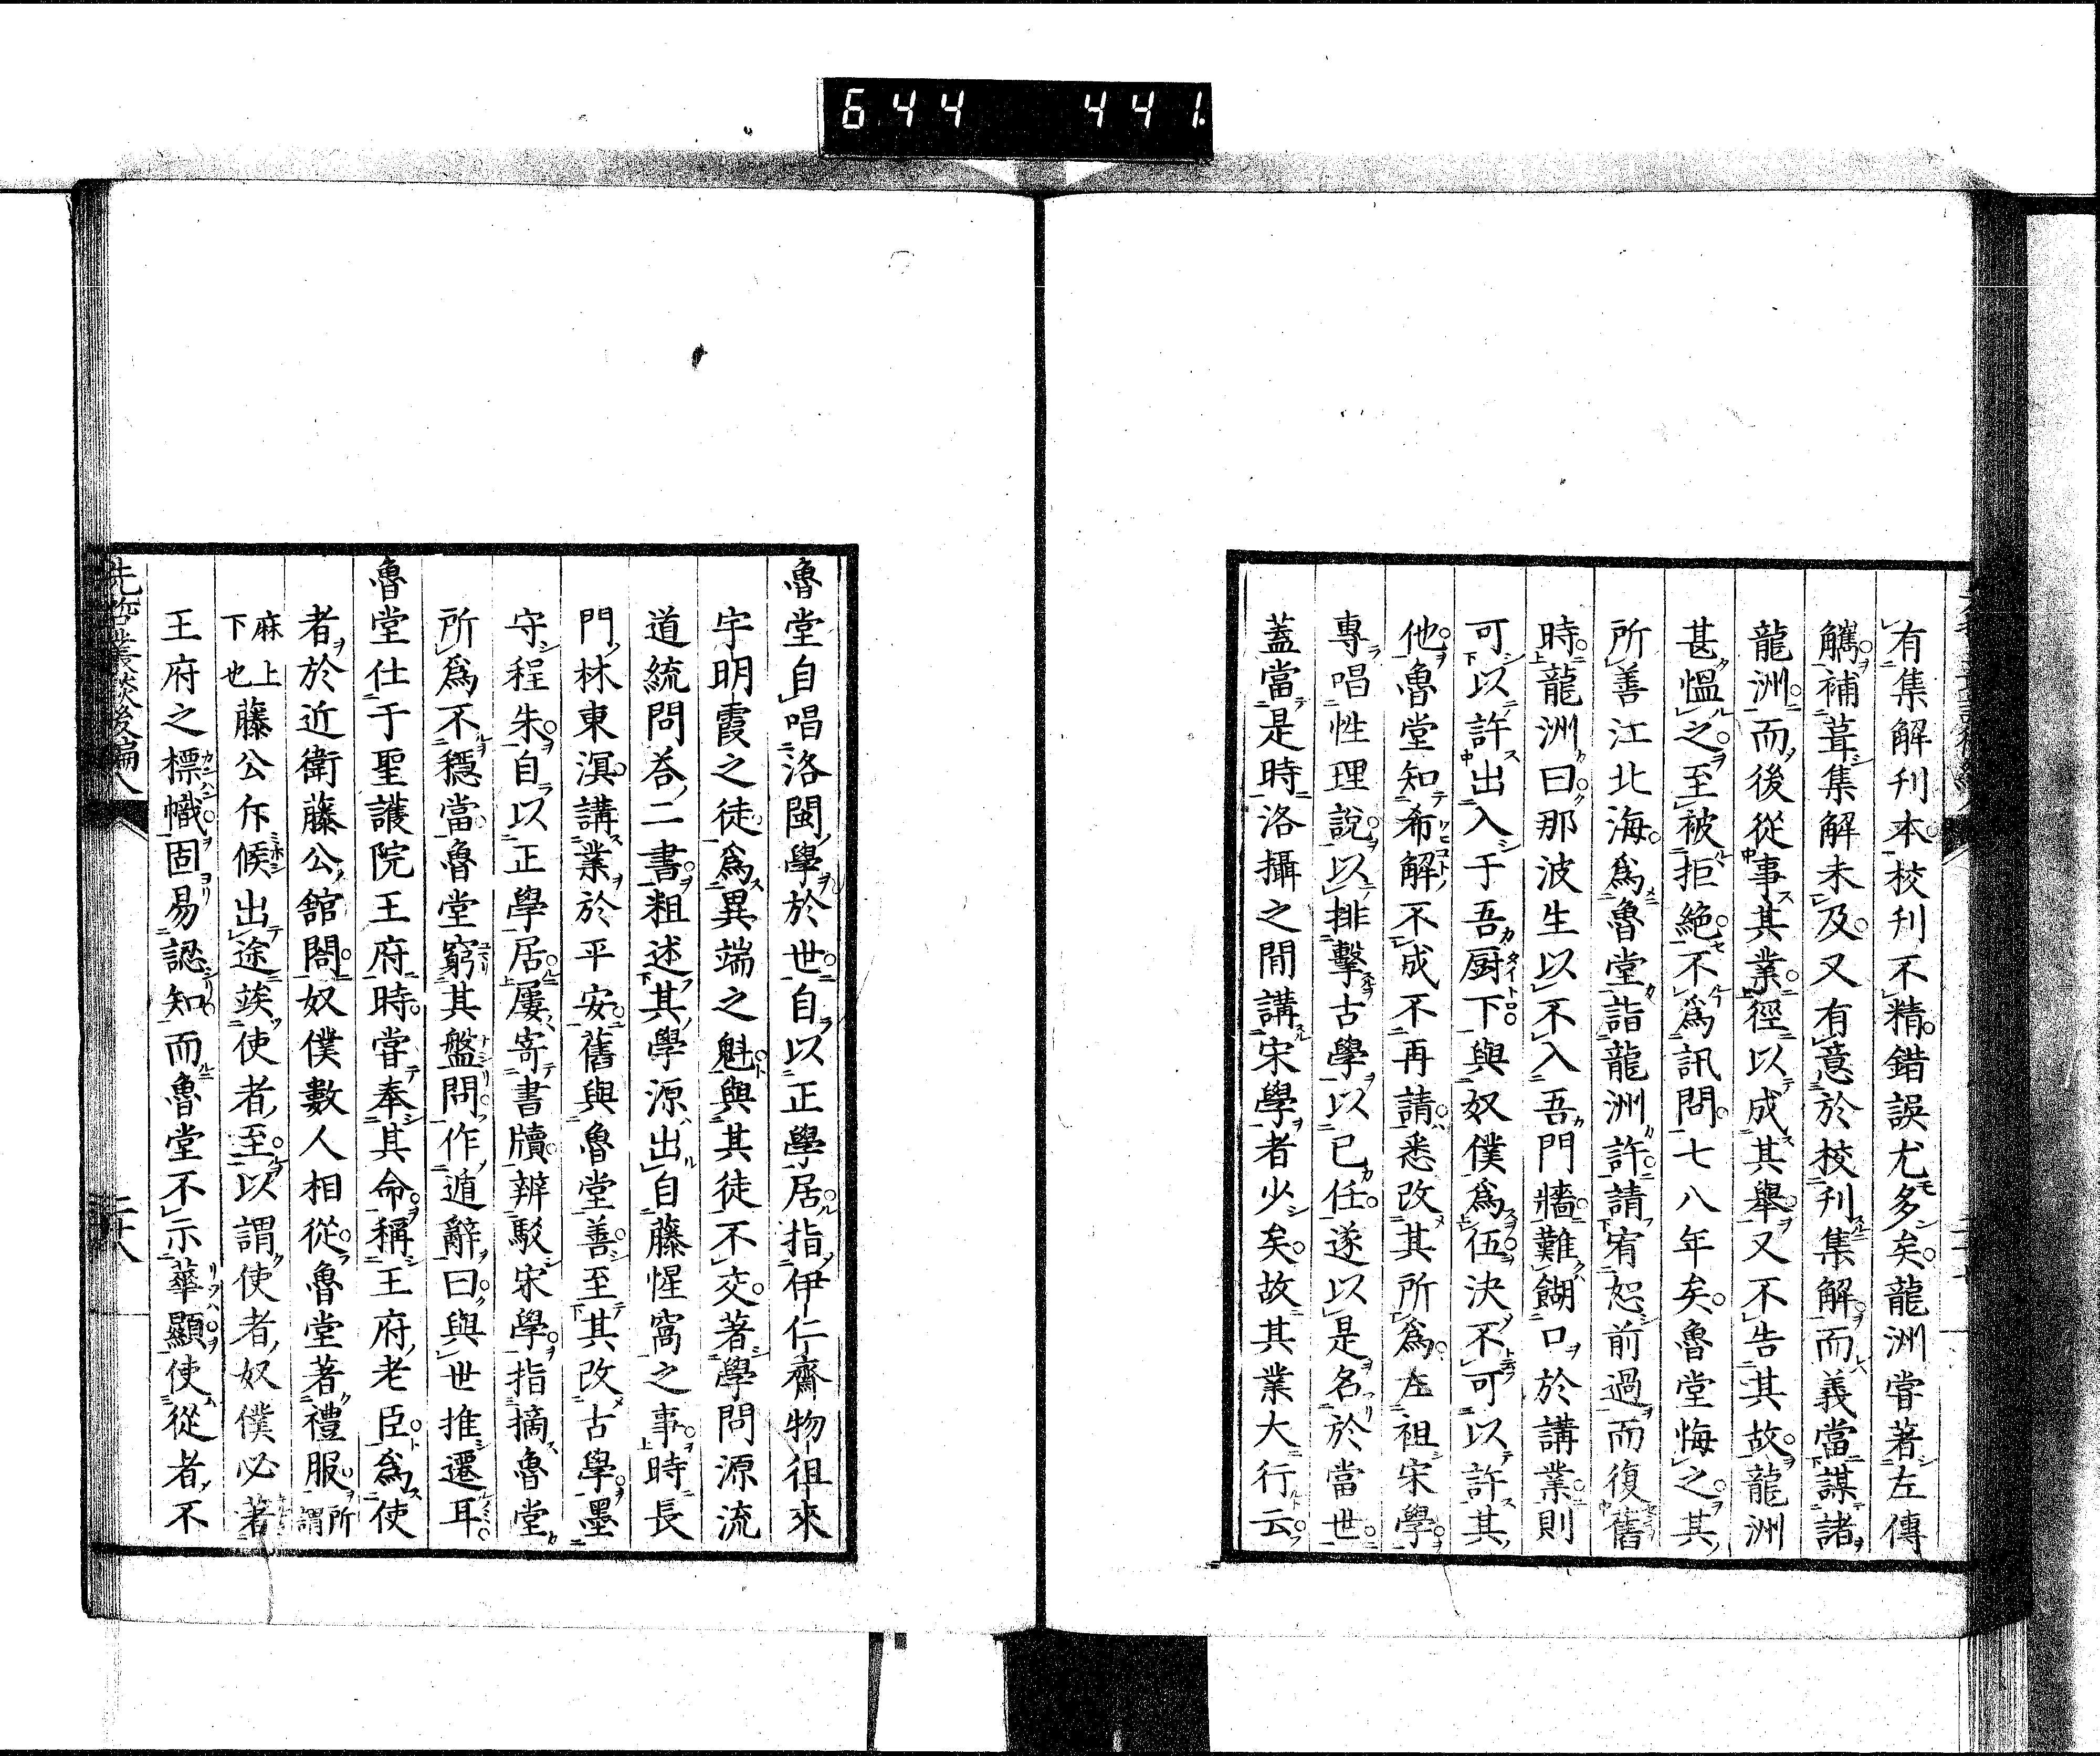 644 441
有集解刊本校刊不精錯誤尤多矣龍洲甞著左傳
觿補葺集解未及又有意於校刊集解而義當謀諸
龍洲而後從事其業徑以成其擧又不告其故龍洲
甚慍之至被拒絶不爲訊問七八年矣魯堂悔之其
所善江北海爲魯堂詣龍洲許請宥恕前過而復舊
時龍洲曰那波生以不入吾門牆難餬口於講業則
可以許出入于吾厨下與奴僕爲伍決不可以許其
他魯堂知希解不成不再請悉改其所爲左祖宋學
專唱性理說以排擊古學以已任遂以是名於當世
蓋當是時洛攝之間講宋學者少矣故其業大行云
魯堂自唱洛閩學於世自以正學居指伊仁齋物徂來
宇明霞之徒爲異端之魁與其徒不交著學問源流
道統問荅二書粗述其學源出自藤惺窩之事時長
門林東溟講業於平安舊與魯堂善至其改古學墨
守程朱自以正學居屢寄書牘辨駁宋學指摘魯堂
所爲不穩當魯堂窮其盤問作遁辭曰與世推遷耳
魯堂仕于聖護院王府時甞奉其命稱王府老臣爲使
者於近衛藤公舘閤奴僕數人相從魯堂著禮服所謂
麻上下也藤公斥候出途竢使者至以謂使者奴僕必著
王府之標幟固易認知而魯堂不示華顯使從者不
先哲叢談後編八